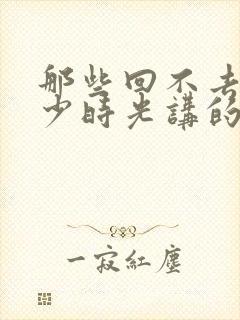 那些回不去
少時光講的
一寂紅塵